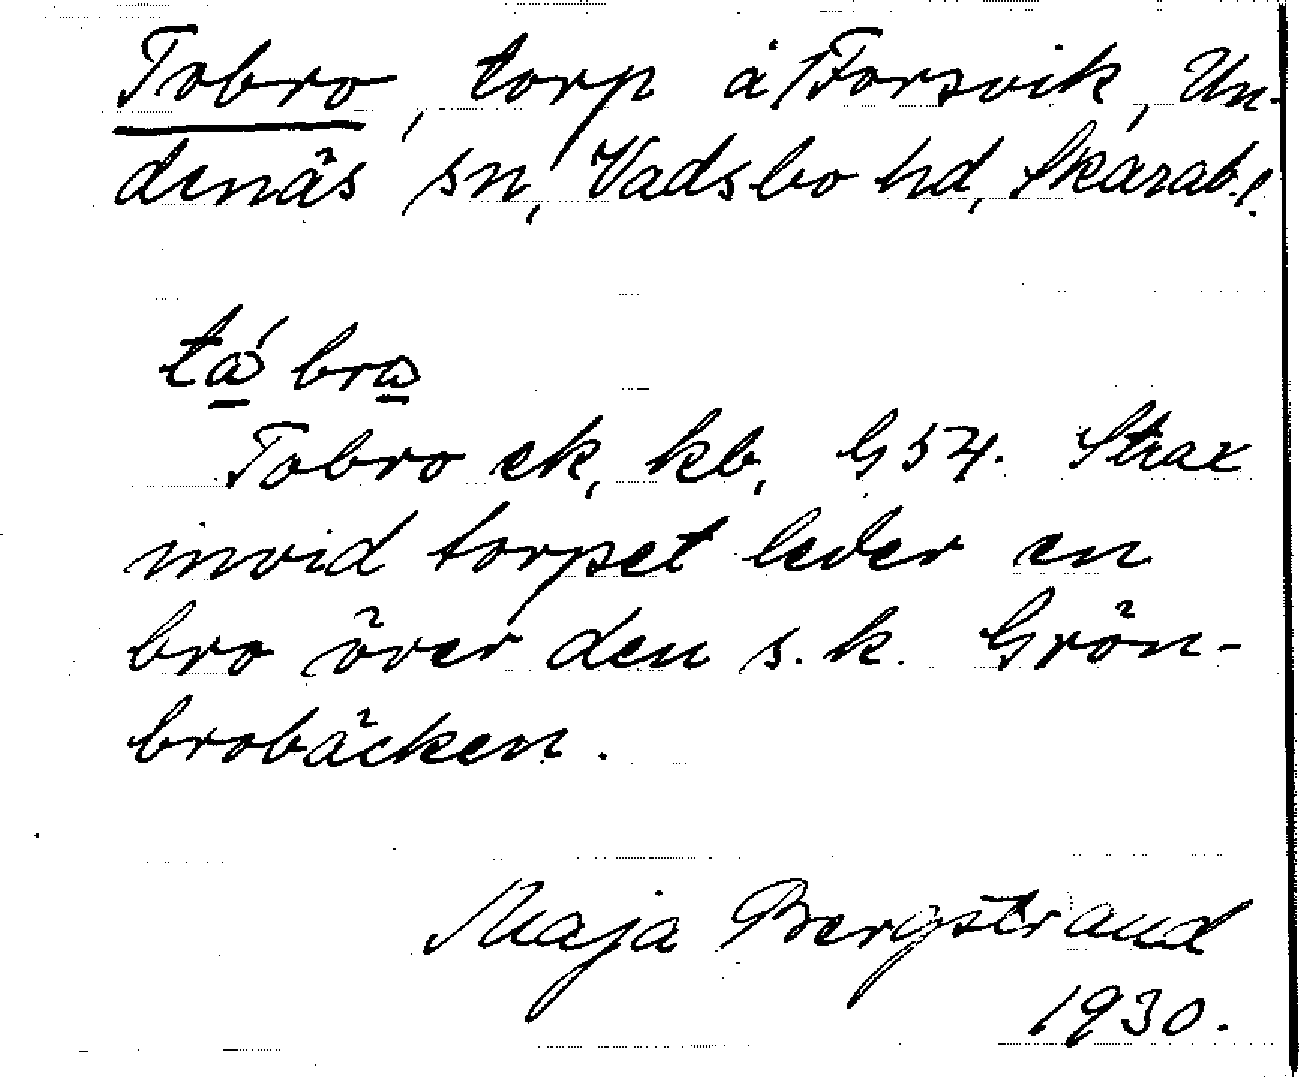 Tobro, torp å Forsvik, Un-
denäs sn, Vadsbo hd, Skarab. l.
tá bra
Tobro ek, kb, G 54. Strax
invid torpet leder en
bro över den s.k. Grön-
brobäcken.
Maja Bergstrand
1930.